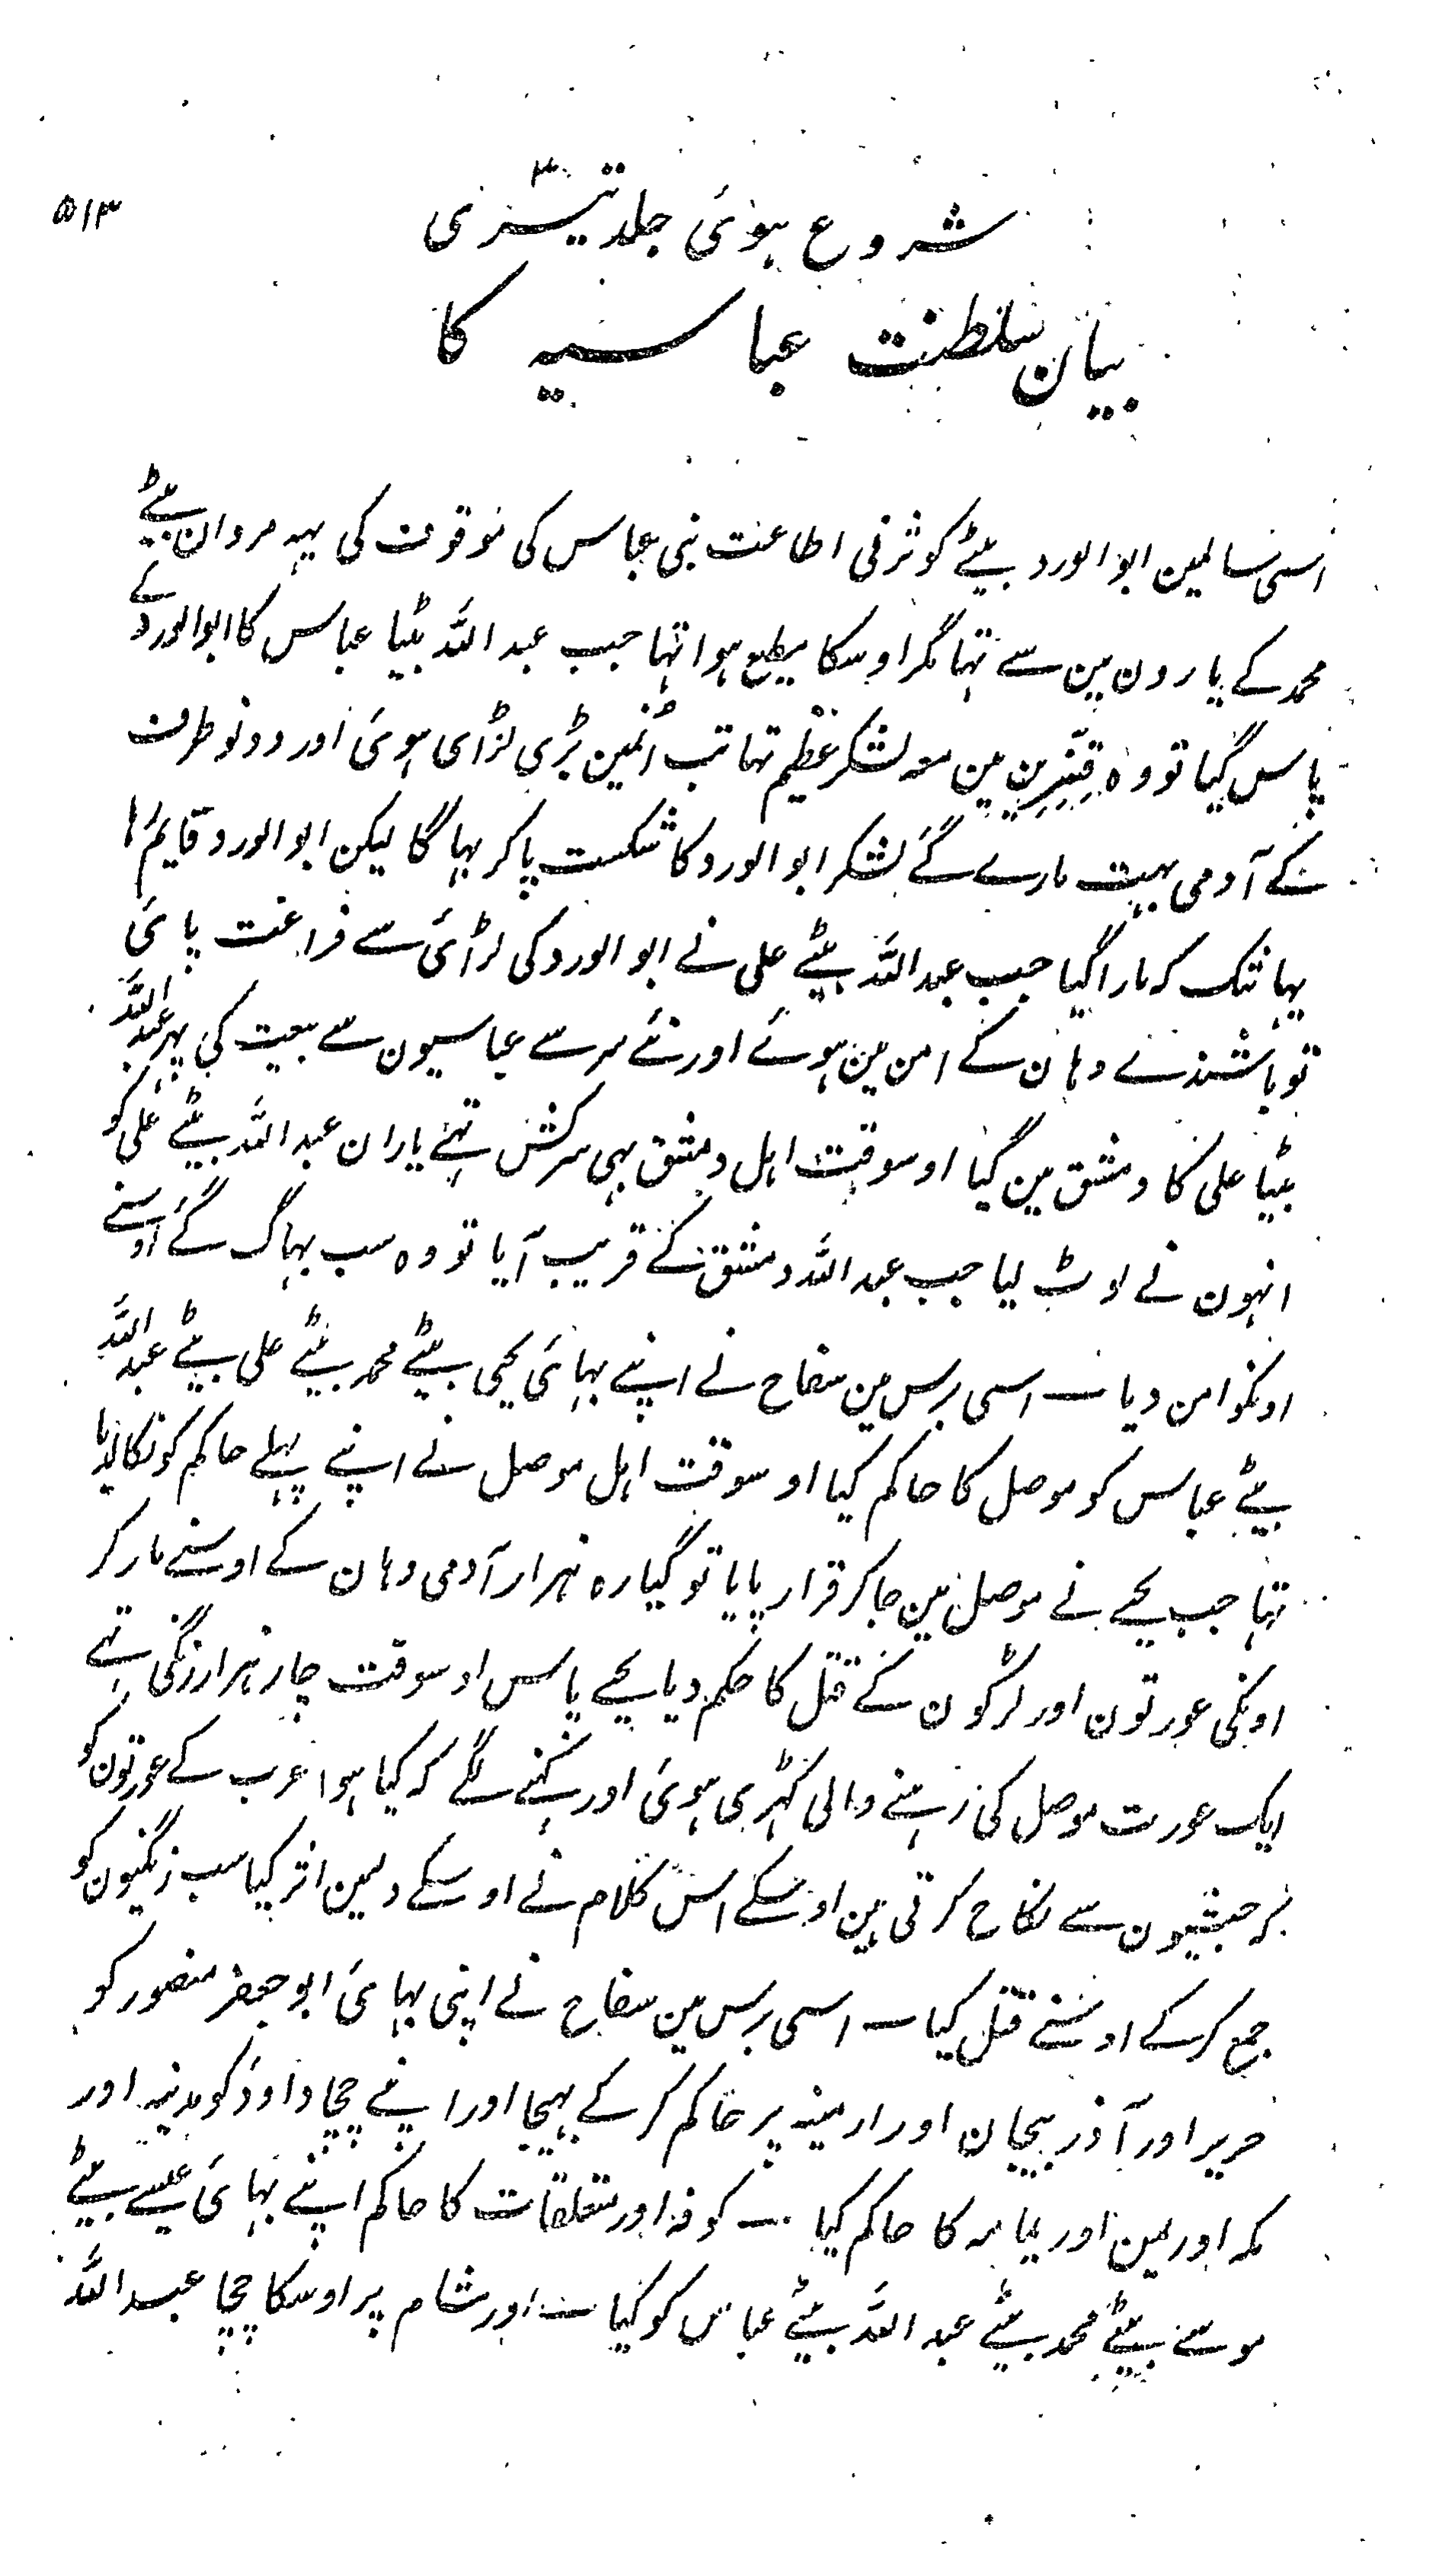 ۵۱۳
شروع ہوئی جلد تیسری ۳
بیان سلطنت عباسیہ کا
اسی سالمین ابو الورد بیٹے کوثر نی اطاعت بنی عباس کی موقوف کی یہہ مروان بیٹے
محمد کے یارون مین سے تہا مگر اوسکا مطیع ہوا تہا جب عبد اللہ بیٹا عباس کا ابو الورد کے
پاس گیا تو وہ قنسرین مین معہ لشکر عظیم تہا تب اُنمین بڑی لڑای ہوئی اور دونو طرف
کے آدمی بہت مارے گئے لشکر ابو الورد کا شکست پاکر بہاگا لیکن ابو الورد قایم رہا
یہانتک کہ مارا گیا جب عبد اللہ بیٹے علی نے ابو الورد کی لڑائی سے فراغت پائی
تو باشندے وہان کے امن مین ہوئے اور نئے سر سے عباسیون سے بیعت کی پہر عبد اللہ
بیٹا علی کا دمشق مین گیا اوسوقت اہل دمشق بہی سرکش تہے یاران عبد اللہ بیٹے علی کو
انہون نے لوٹ لیا جب عبد اللہ دمشق کے قریب آیا تو وہ سب بہاگ گئے اوسنے
اونکو امن دیا ـ اسی برس مین سفاح نے اپنے بہائی یحیی بیٹے محمد بیٹے علی بیٹے عبد اللہ
بیٹے عباس کو موصل کا حاکم کیا اوسوقت اہل موصل نے اپنے پہلے حاکم کو نکالدیا
تہا جب یحیے نے موصل مین جاکر قرار پایا تو گیارہ ہزار آدمی وہان کے اوسنے مار کر
اونکی عورتون اور لڑکون کے قتل کا حکم دیا یحیے پاس اوسوقت چار ہزار زنگی تہے
ایک عورت موصل کی رہنے والی کہڑی ہوئی اور کہنے لگے کہ کیا ہوا عرب کے عورتون کو
کہ حبشیون سے نکاح کرتی ہین اوسکے اس کلام نے اوسکے دلمین اثر کیا سب زنگیون کو
جمع کرکے اوسنے قتل کیا ـ اسی برس مین سفاح نے اپنی بہائی ابو جعفر منصور کو
جریر اور آذربیجان اور ارمنیہ پر حاکم کرکے بہیجا اور اپنے چچا داوٗد کو مدینہ اور
مکہ اور یمن اور یمامہ کا حاکم کیا ـ کوفہ اور متعلقات کا حاکم اپنے بہائی عیسے بیٹے
موسے بیٹے محمد بیٹے عبد اللہ بیٹے عباس کو کیا ـ اور شام پر اوسکا چچا عبد اللہ